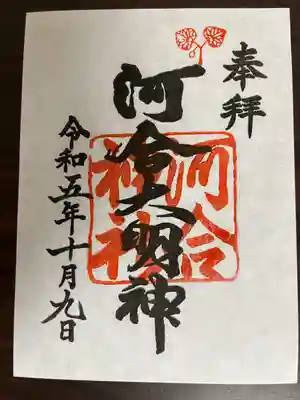 奉拝
河合大明神
河合
神社
令和五年十月九日